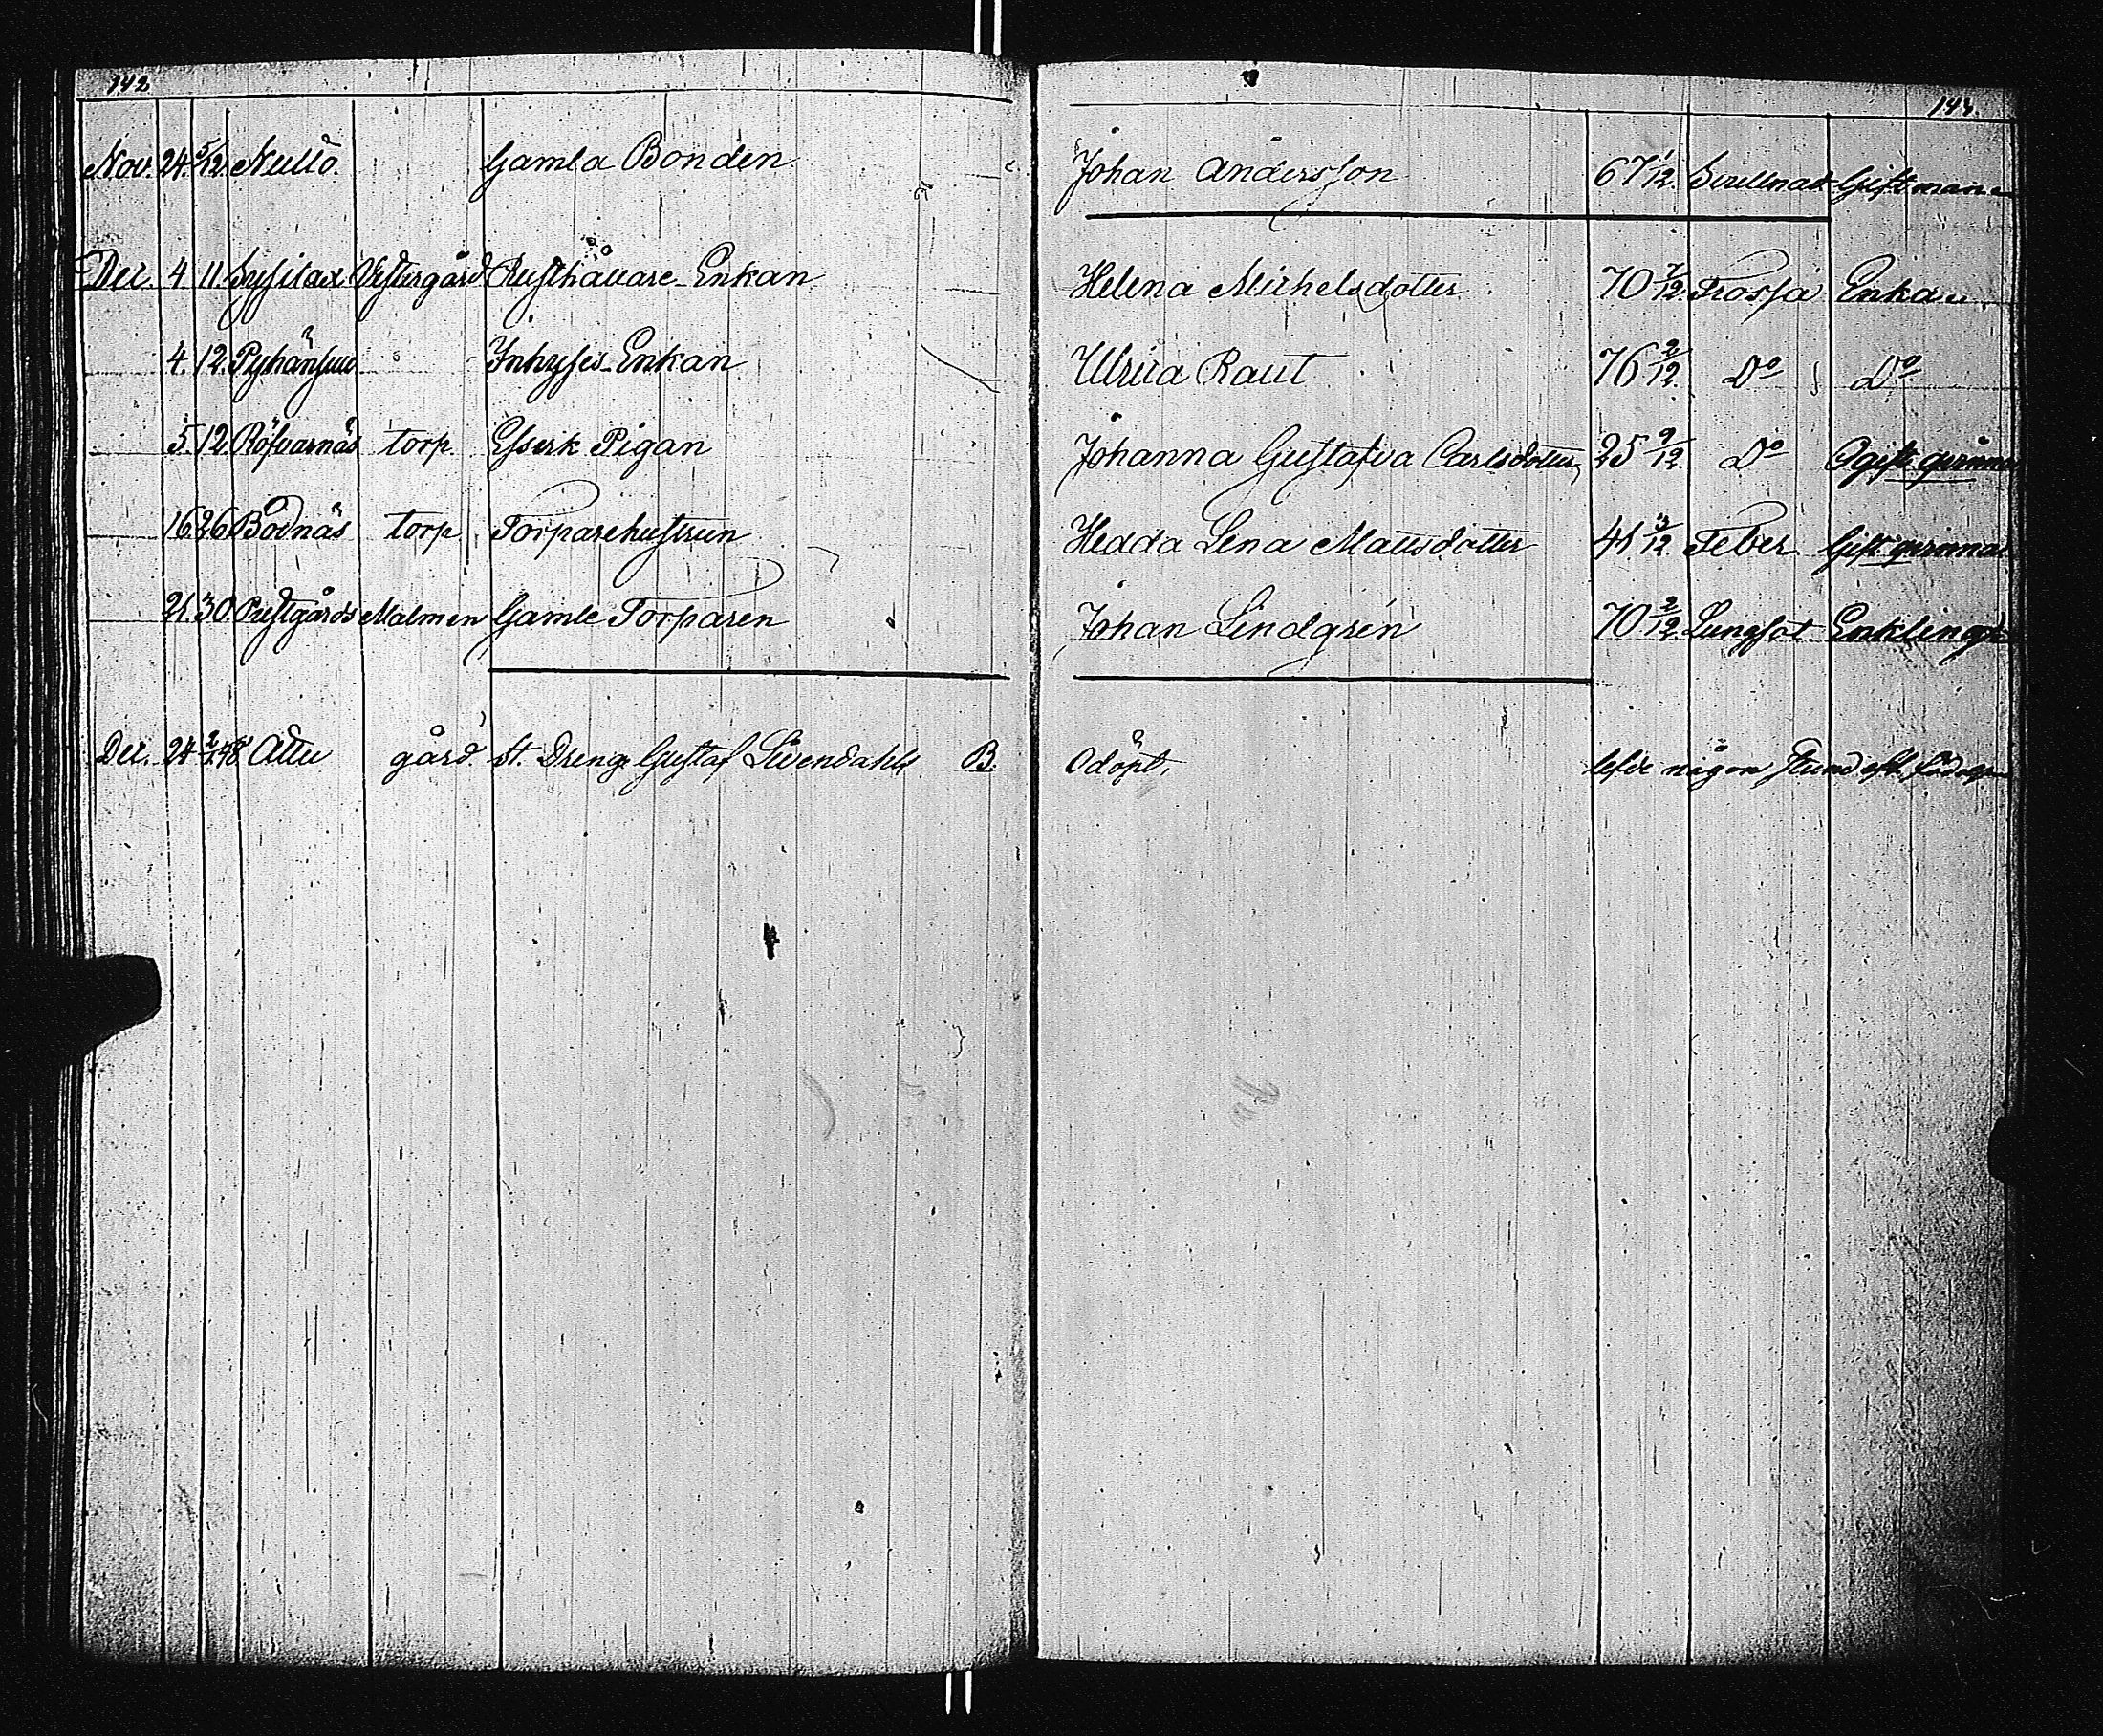 142
143.
Nov. 24. 5/12. Nullö. Gamla Bonden Johan Andersson 67 1/12. Svullnad Gift man
Dec. 4 11. Vestergård Rusthållare-Enkan Helena Michelsdotter 70 7/12. Trossjä Enka
4. 12. Pyhänsuu Inhyses-Enkan Ulrica Raut 76 2/12. Do Do
5. 12. Röfvarnäs torp. Pigan Johanna Gustafva Carlsdotter, 25 9/12. Do Ogift qvinna
16. 26 Bodnäs torp Torparehustrun Hedda Lena Mattsdotter 41 3/12. Feber. Gift qvinna
21. 30. Prestgårds Malmen Gamle Torparen Johan Lindgrén 70 2/12. Lungsot Enkling
Dec. 24 2/1.48 Attu gård st. Dreng Gustaf B. Odöpt, lefde någon stund eft. födseln